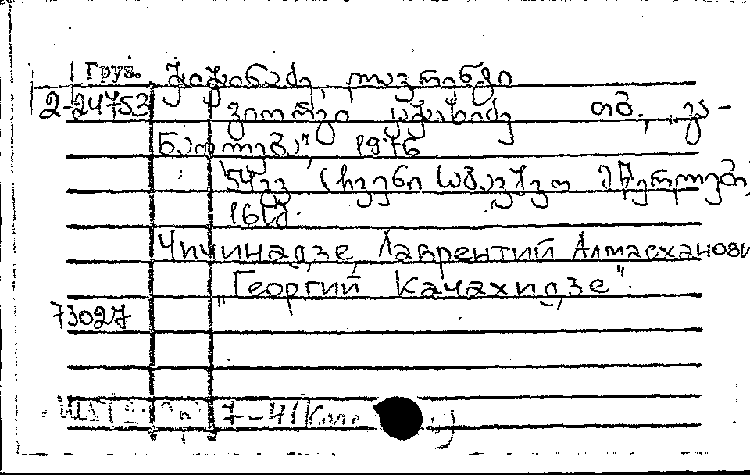 Груз. ჭიჭინაძე, ლავრენტი
2-24753 გიორგი კაჭახიძე თბ., „გა-
ნათლება", 1976
54გვ (ჩვენი საბავშვო მწერლები)
16
Чичинадзе, Лаврентий Алмасханови
„Георгий Качахидзе"
73027
7-41